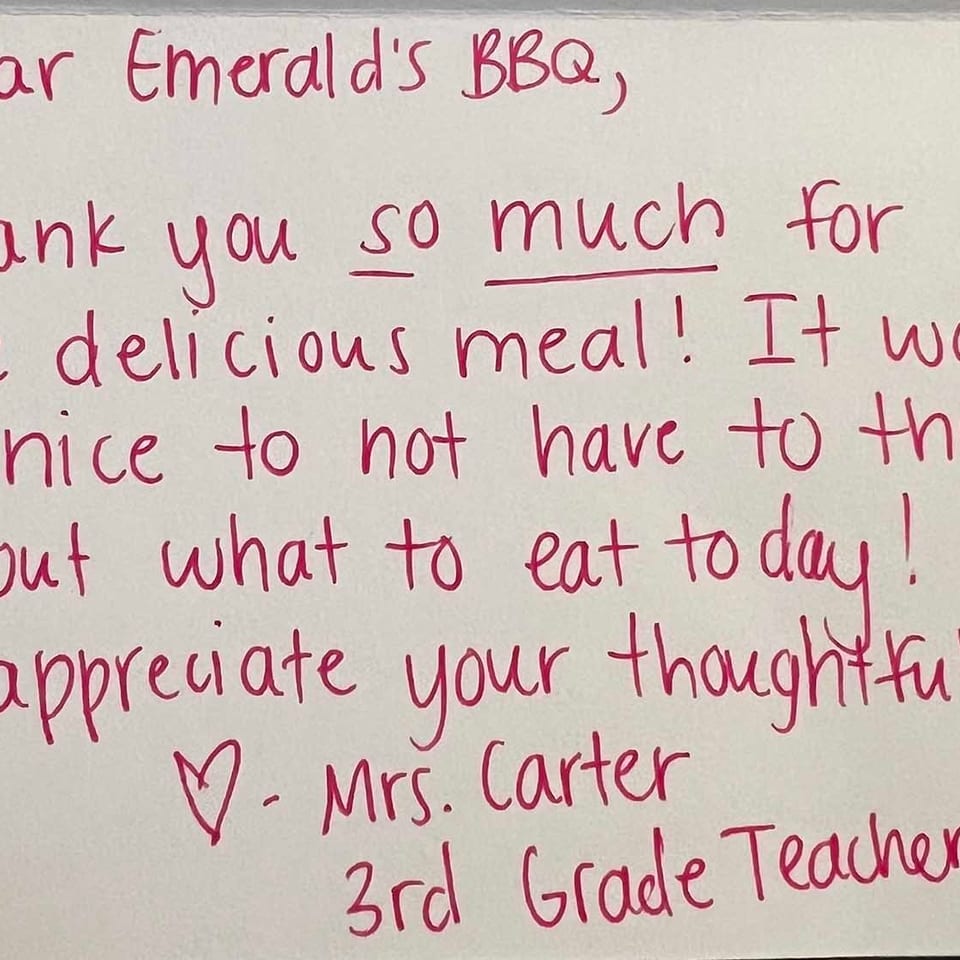 ar Emerald's BBQ,
ank you so much for
delicious meal! It
nice to not have to th
out what to eat today!
appreciate your thoughtfu
♡ - Mrs. Carter
3rd Grade Teacher